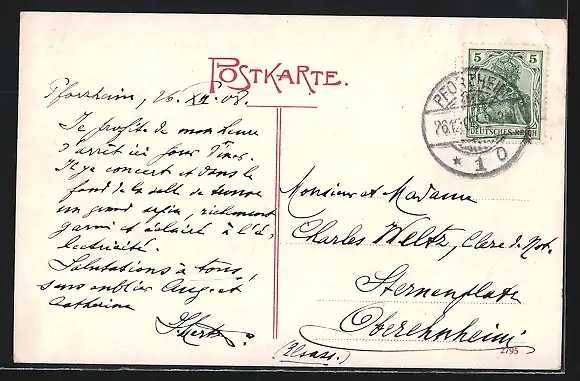 POSTKARTE.
Pforzheim, 26. XII. 08.
Je profite de mon heure
d'arrêt ici pour dîner.
Il y a concert et dans le
fond de la salle de danse
un grand sapin, richement
garni et éclairé à l'é-
lectricité.
Salutations à tous,
sans oublier Aug. et
Catherine
5 5
DEUTSCHES REICH
PFORZHEIM
26.12.08
* 1 0
Monsieur et Madame
Charles Weltz, Clerc de Not.
Sternenplatz
Oberehnheim
(Elsass.)
2795